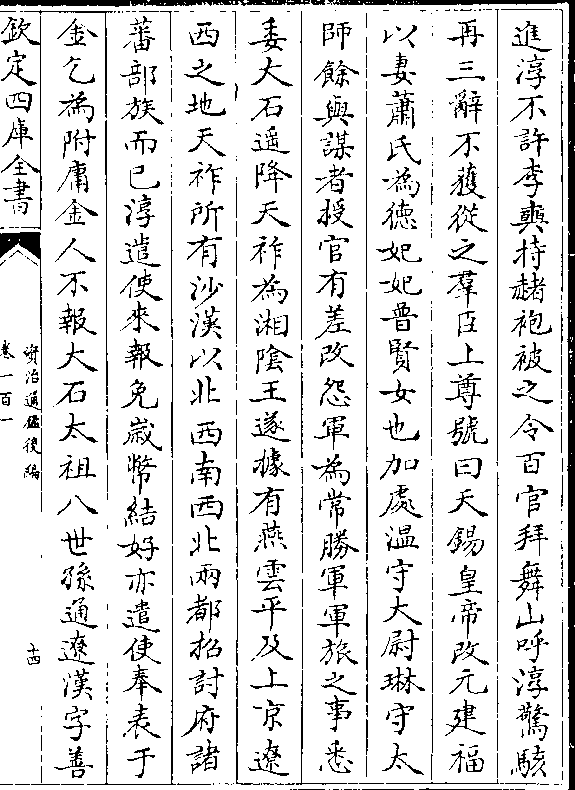 進淳不許李奭持赭袍被之令百官拜舞山呼淳驚駭
再三辭不獲從之羣臣上尊號曰天錫皇帝改元建福
以妻蕭氏為德妃妃普賢女也加處温守大尉琳守太
師餘與謀者授官有差改怨軍為常勝軍軍旅之事悉
委大石遥降天祚為湘陰王遂據有燕雲平及上京遼
西之地天祚所有沙漠以北西南西北兩都招討府諸
蕃部族而已淳遣使來報免歳幣結好亦遣使奉表于
金乞為附庸金人不報大石太祖八世孫通遼漢字善
欽定四庫全書
資治通鑑後編
卷一百一
十四